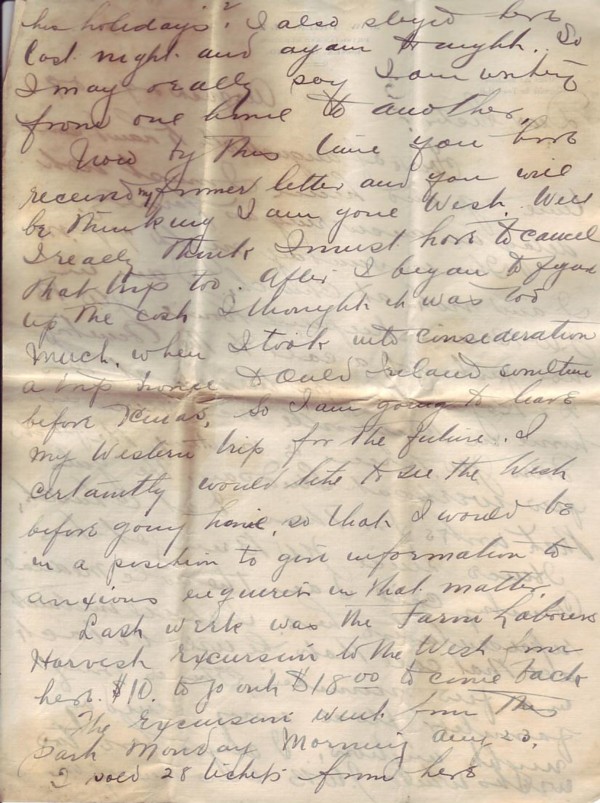 his holidays? I also stayed here
last night and again tonight. So
I may really say I am writing
from one home to another.
Now by this time you have
received my former letter and you will
be thinking I am gone West. Well
I really think I must have to cancel
that trip too. After I began to figure
up the cost I thought it was too
much, when I took into consideration
a trip home to Ould Ireland sometime
before Xmas, so I am going to leave
my Western trip for the future. I
certaintly would like to see the West
before going home, so that I would be
in a position to give information to
anxious enquirers in that matter.
Last week was the Farm Labourers
Harvest Excursion to the West from
here. $10. to go out $18.00 to come back
The Excursion went from this
Monday Morning Aug 23.
I sold 28 tickets from here